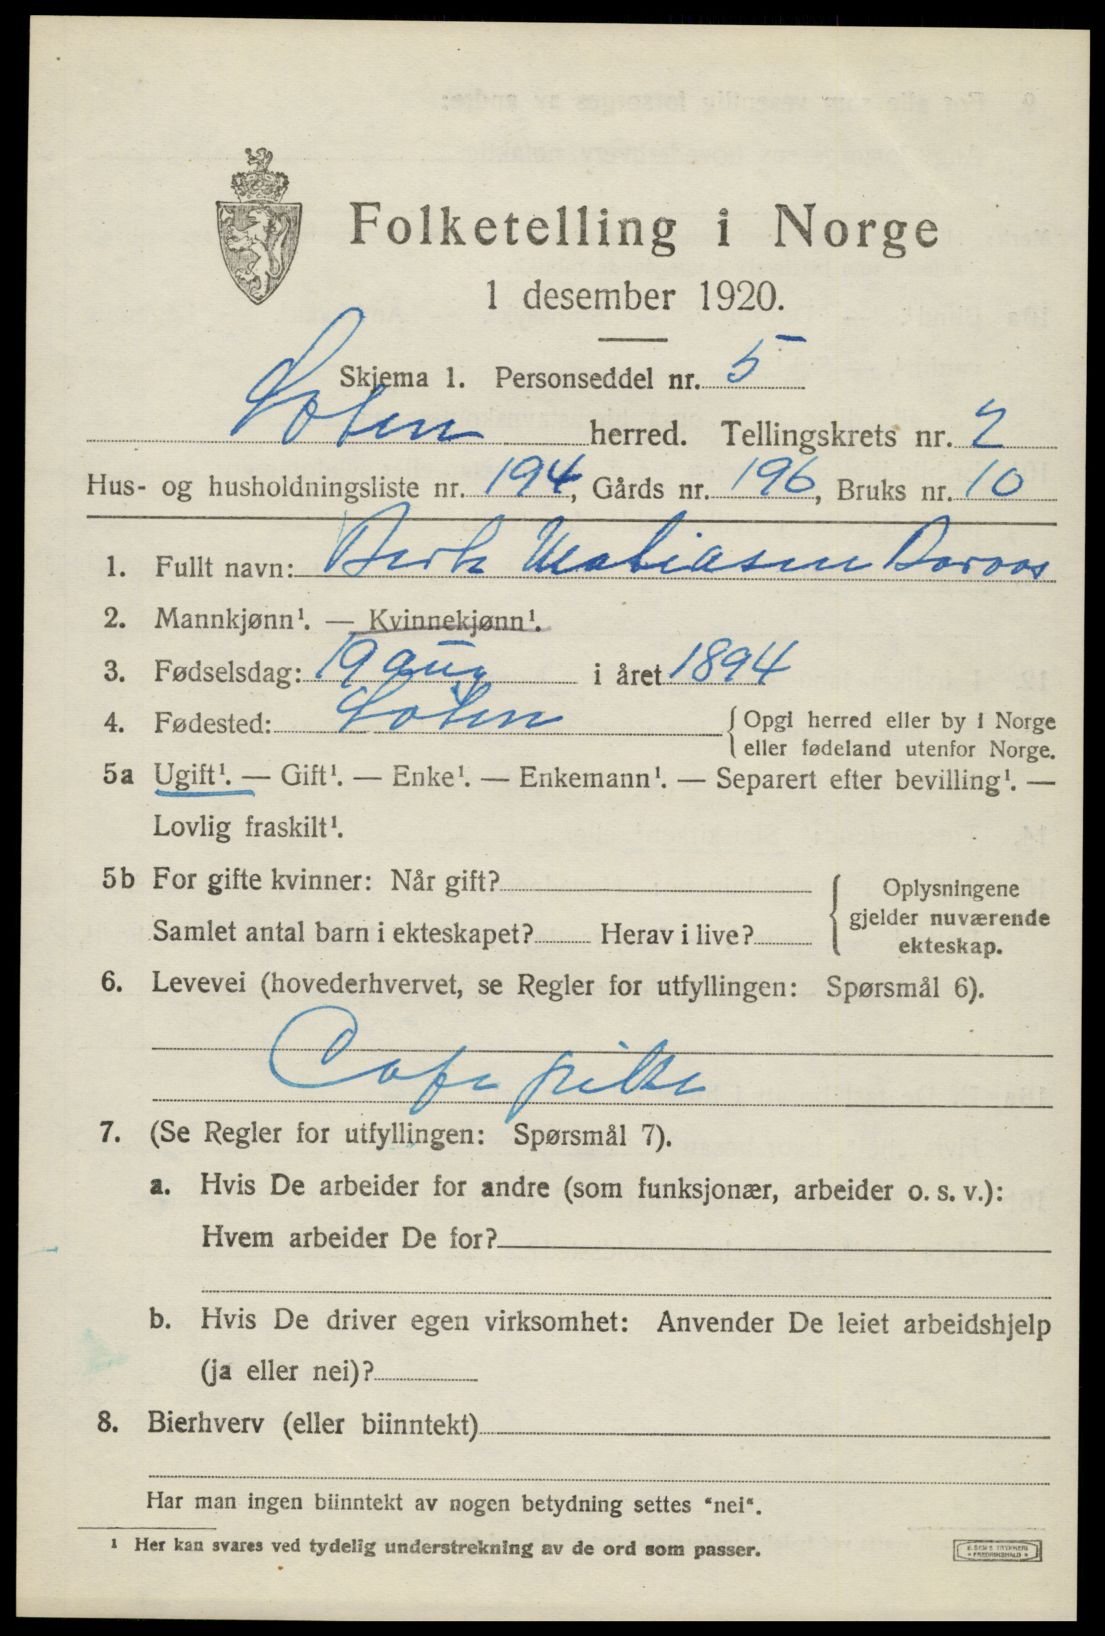 Folketelling i Norge
1 desember 1920.
Skjema 1. Personseddel nr. 5
Løten herred. Tellingskrets nr. 2
Hus- og husholdningsliste nr. 194, Gårds nr. 196, Bruks nr. 10
1. Fullt navn: Matiasen
2. Mannkjønn¹. — Kvinnekjønn¹.
3. Fødselsdag: 19 aug i året 1894
4. Fødested: Løten { Opgi herred eller by i Norge
eller fødeland utenfor Norge.
5a Ugift¹. — Gift¹. — Enke¹. — Enkemann¹. — Separert efter bevilling¹. —
Lovlig fraskilt¹.
5b For gifte kvinner: Når gift?
Samlet antal barn i ekteskapet? Herav i live?
Oplysningene
gjelder nuværende
ekteskap.
6. Levevei (hovederhvervet, se Regler for utfyllingen: Spørsmål 6).
Cafe
7. (Se Regler for utfyllingen: Spørsmål 7).
a. Hvis De arbeider for andre (som funksjonær, arbeider o. s. v.):
Hvem arbeider De for?
b. Hvis De driver egen virksomhet: Anvender De leiet arbeidshjelp
(ja eller nei)?
8. Bierhverv (eller biinntekt)
Har man ingen biinntekt av nogen betydning settes "nei".
¹ Her kan svares ved tydelig understrekning av de ord som passer.